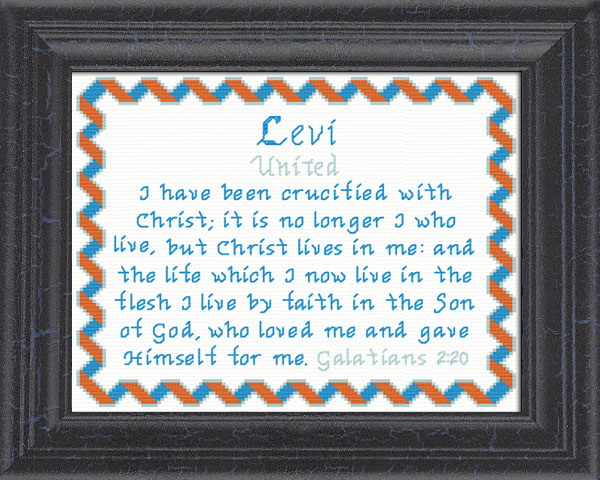 Levi
United
I have been crucified with
Christ; it is no longer I who
live, but Christ lives in me: and
the life which I now live in the
flesh I live by faith in the Son
of God, who loved me and gave
Himself for me. Galatians 2:20